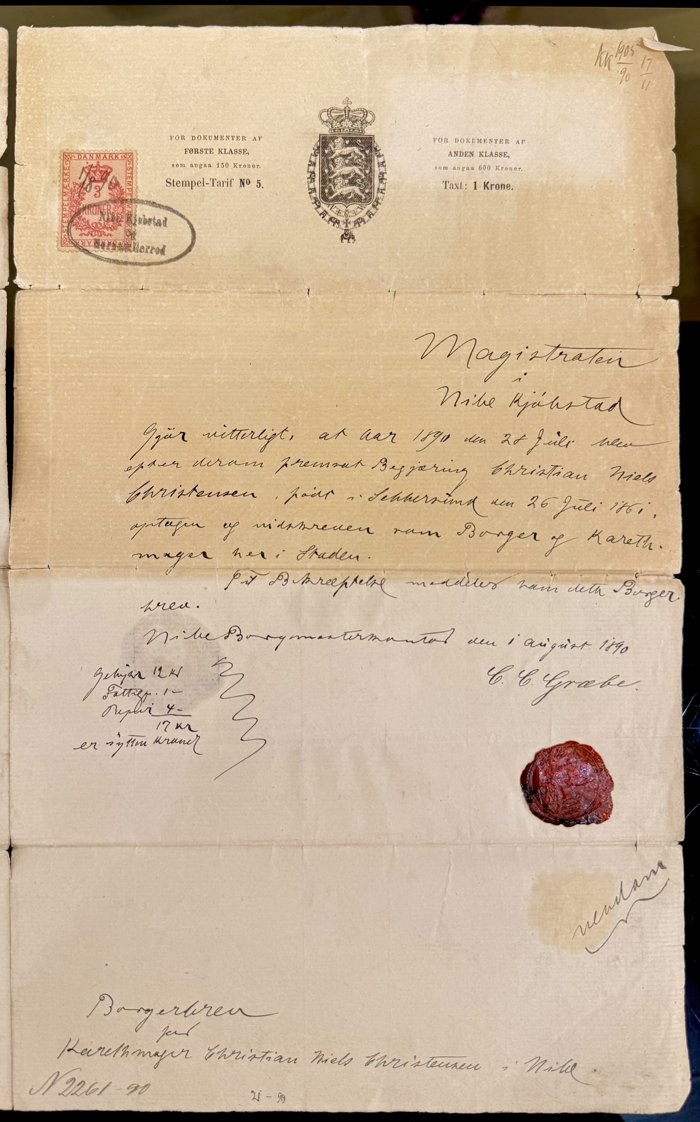 KK 1905/90 17/11
FOR DOKUMENTER AF
FØRSTE KLASSE,
som angaa 150 Kroner.
Stempel-Tarif No 5.
FOR DOKUMENTER AF
ANDEN KLASSE,
som angaa 600 Kroner.
Taxt: 1 Krone.
DANMARK
3
KRONER
Nibe Kjøbstad
og
Herred
Magistraten
i
Nibe Kjøbstad
Gjør vitterligt, at Aar 1890 den 28 Juli blev
efter derom fremsat Begjæring Christian Niels
Christensen, født i Sebbersund den 26 Juli 1861,
optagen og indskreven som Borger og Kareth-
mager her i Staden.
Til Bekræftelse meddeles ham dette Borger-
brev.
Nibe Borgemesterkontor den 1 August 1890
C. C. Græbe.
Gebyr 12 Kr
Fattigv. 1 -
4 -
17 Kr
er sytten Kroner
Borgerbrev
for
Karethmager Christian Niels Christensen i Nibe.
N 2261-90